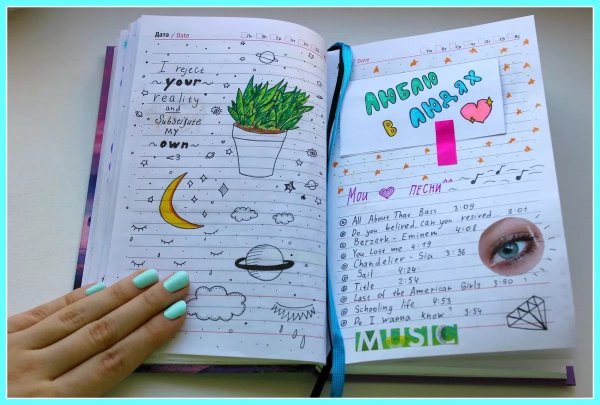 Дата / Date
I reject
~your~
reality
and
Substitute
MY
~own~
<3
Date
ЛЮБЛЮ
В ЛЮДЯХ
Мои песни ^^
All About That Bass 3:09
Do you belived, can you resived... 3:01
Berzerk - Eminem 4:08
You Lose me 4:19
Chandelier - Sia 3:36
Sail 4:24
Title 2:54
Last of the American Girls 3:50
Schooling life 4:53
Do I wanna know? 3:54
MUSIC